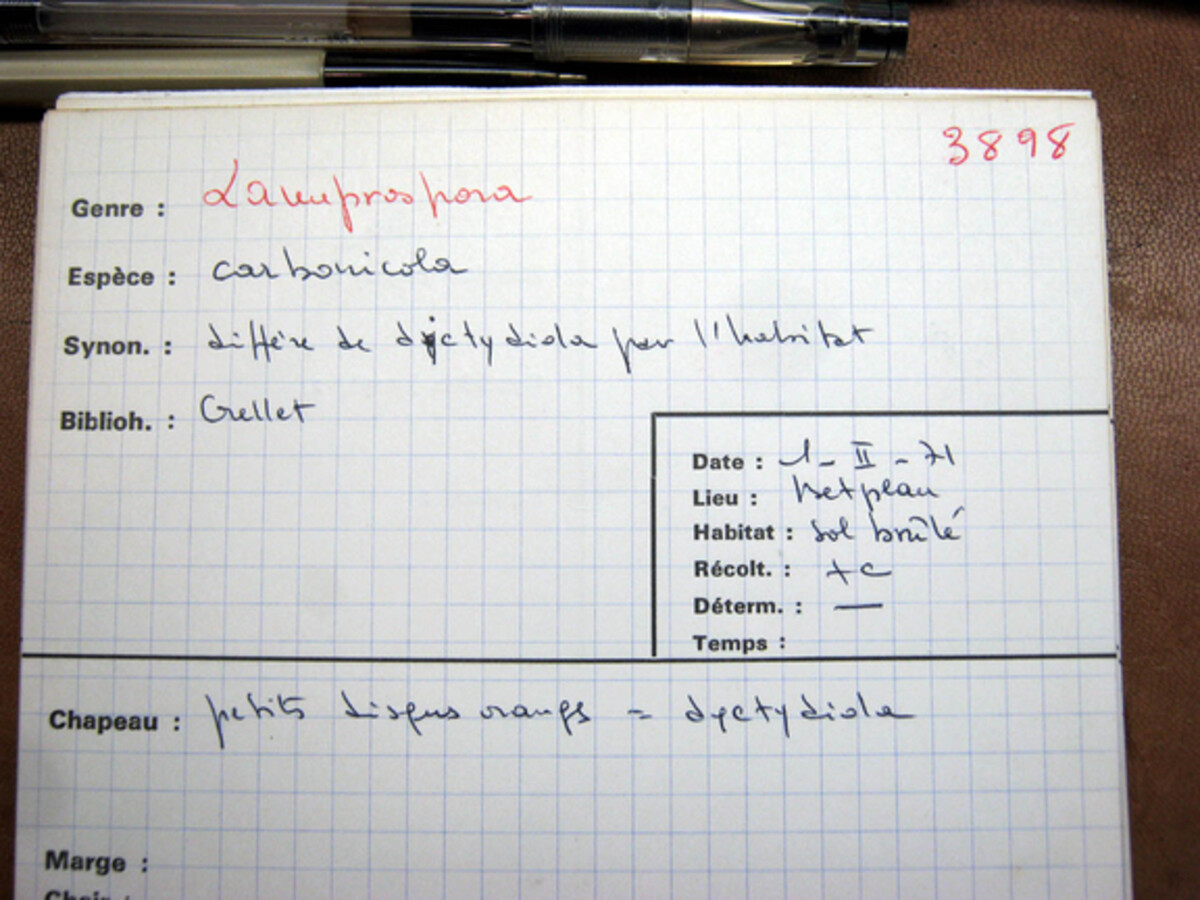 3898
Genre : Lamprospora
Espèce : carbonicola
Synon. : diffère de dyctydiola par l'habitat
Biblioh. : Grellet
Date : 1 - II - 71
Lieu :
Habitat : sol brûlé
Récolt. : + C
Déterm. : —
Temps :
Chapeau : petits disques orangs = dyctydiola
Marge :
Chair :